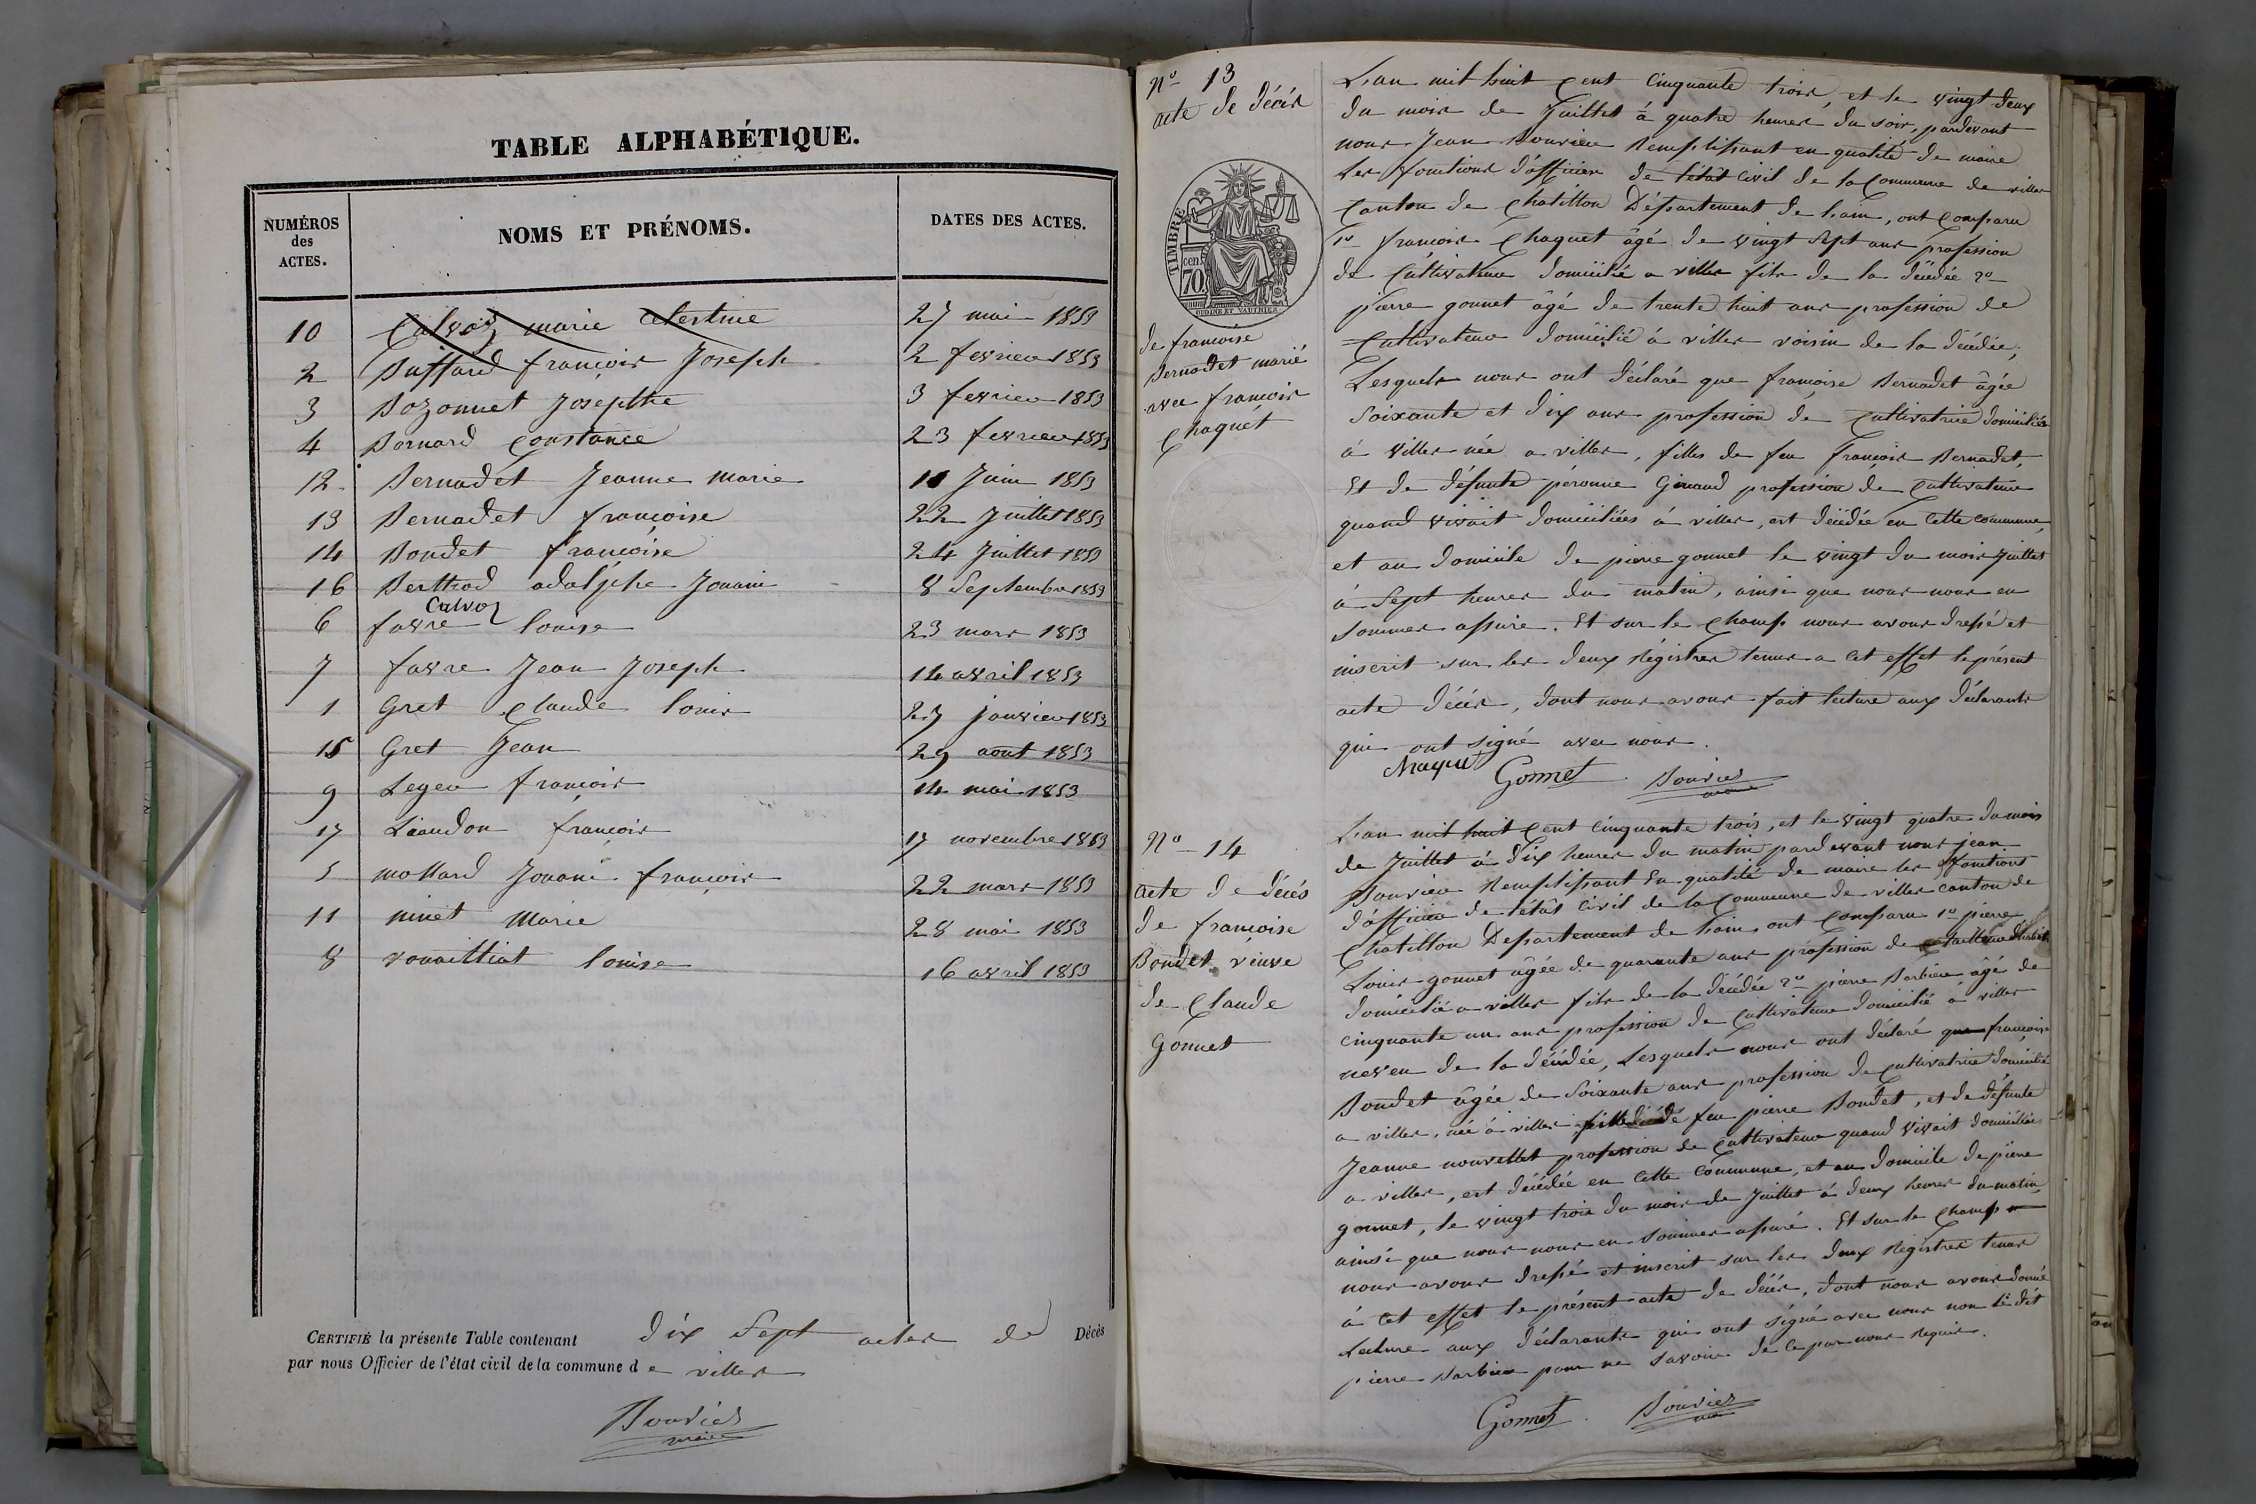 TABLE ALPHABÉTIQUE.
NUMÉROS des ACTES. NOMS ET PRÉNOMS. DATES DES ACTES.
10 Calvoz marie Celestine 27 mai 1853
2 Buffard françois Joseph 2 fevrier 1853
3 Bozonnet Josephte 3 fevrier 1853
4 Bornard Constance 23 fevrier 1853
12 Bernadet Jeanne marie 11 Juin 1853
13 Bernadet françoise 22 Juillet 1853
14 Bondet françoise 24 Juillet 1853
16 Berthod adolphe Jouani 8 Septembre 1853
Calvoz
6 favre louise 23 mars 1853
7 favre Jean Joseph 14 avril 1853
1 Gret Claude louis 27 janvier 1853
15 Gret Jean 29 aout 1853
9 Leger françois 14 mai 1853
17 Liaudon françois 17 novembre 1853
5 mollard Jouani françois 22 mars 1853
11 ninet Marie 28 mai 1853
8 vouailliat louise 16 avril 1853
CERTIFIÉ la présente Table contenant dix Sept actes de Décès
par nous Officier de l'état civil de la commune de villes
Bouvier
maire
N° 13
acte de décès
TIMBRE
70 cent.
de françoise
Bernadet marié
avec françois
Chaquet
L'an mil huit Cent Cinquante trois, et le vingt deux
du mois de Juillet à quatre heures du soir, pardevant
nous Jean Bouvier Remplissant en qualité de maire
Les fonctions d'officier de l'état Civil de la Commune de villes
Canton de Chatillon Département de L'ain, ont Comparu
1° françois Chaquet âgé de vingt Sept ans profession
de Cultivateur domicilié a villes fils de la décédée 2°
pierre gonnet âgé de trente huit ans profession de
Cultivateur domicilié à villes voisin de la décédée,
Lesquels nous ont déclaré que françoise Bernadet âgée
Soixante et dix ans profession de Cultivatrice domiciliée
à villes née a villes, filles de feu François Bernadet,
Et de défunte péronne Giraud profession de Cultivateur
quand vivait domiciliées à villes, est décédée en Cette commune,
et au domicile de pierre gonnet le vingt du mois Juillet
à Sept heures du matin, ainsi que nous nous en
Sommes assure. Et sur le Champ nous avons dressé et
inscrit sur les deux Régistres tenus a Cet effet le présent
acte décès, dont nous avons fait lecture aux déclarants
qui ont signé avec nous.
Chaque Gonnet Bouvier
N° 14
acte de décès
de françoise
Bondet veuve
de Claude
Gonnet
L'an mil huit Cent Cinquante trois, et le vingt quatre du mois
de Juillet à dix heures du matin pardevant nous jean
Bouvier Remplissant En qualité de maire les fonctions
d'officier de l'état Civil de la Commune de villes canton de
Chatillon Departement de L'ain, ont Comparu 1° pierre
Louis gonnet âgée de quarante ans profession de tailleur d'habit
domicilié a villes fils de la décédée 2° pierre Barbier âgé de
cinquante un ans profession de Cultivateur domicilié à villes
neveu de la décédée, Lesquels nous ont déclaré que françoise
Bondet âgée de Soixante ans profession de Cultivatrice domicilié
a villes, née à villes fille de feu pierre Bondet, et de défunte
Jeanne nouvellet profession de Cultivateur quand vivait domiciliés
a villes, est décédée en Cette Commune, et au domicile de pierre
gonnet, le vingt trois du mois de Juillet à deux heures du matin
ainsi que nous nous en Sommes assuré. Et sur le Champ
nous avons dressé et inscrit sur les deux Régistres tenus
à Cet effet le présent acte de décès, dont nous avons donné
Lecture aux déclarants qui ont signé avec nous non le dit
pierre Barbier pour ne Savoir de Ce par nous Requis.
Gonnet Bouvier